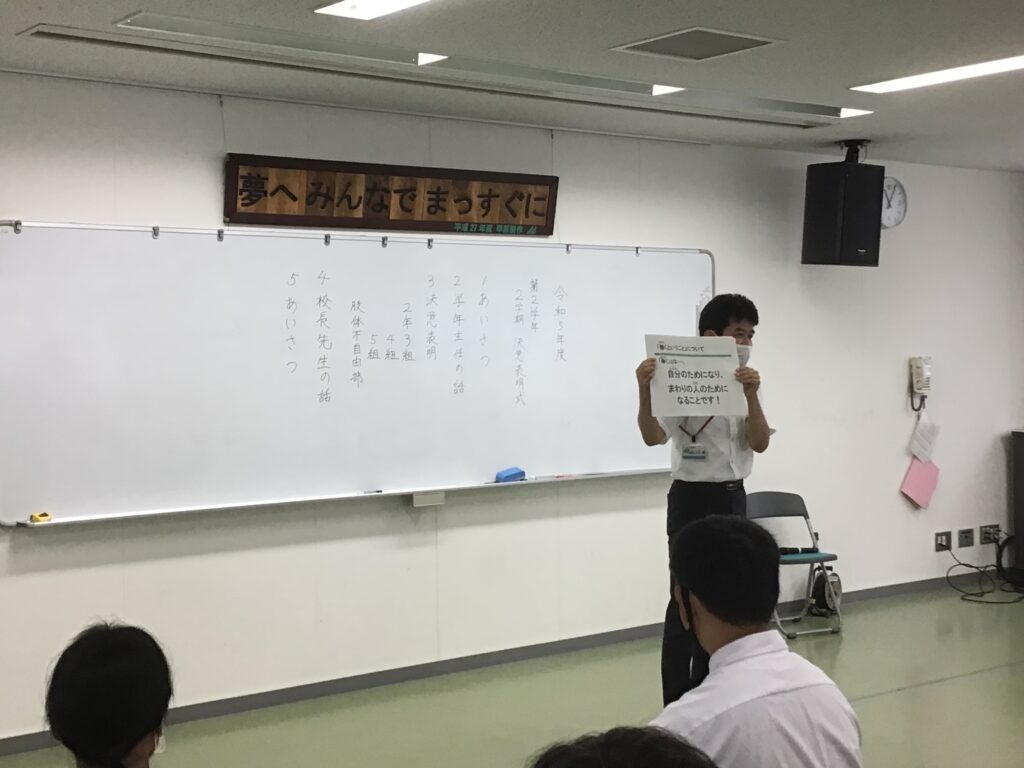 夢へ みんなで まっすぐに
平成27年度 卒業制作
令和5年度
第2学年
2学期 決意表明式
1 あいさつ
2 学年主任の話
3 決意表明
2年3組
4組
5組
肢体不自由部
4 校長先生の話
5 あいさつ
「働くということ」について
「働く」とは…
自分のためになり、
まわりの人のために
なることです!